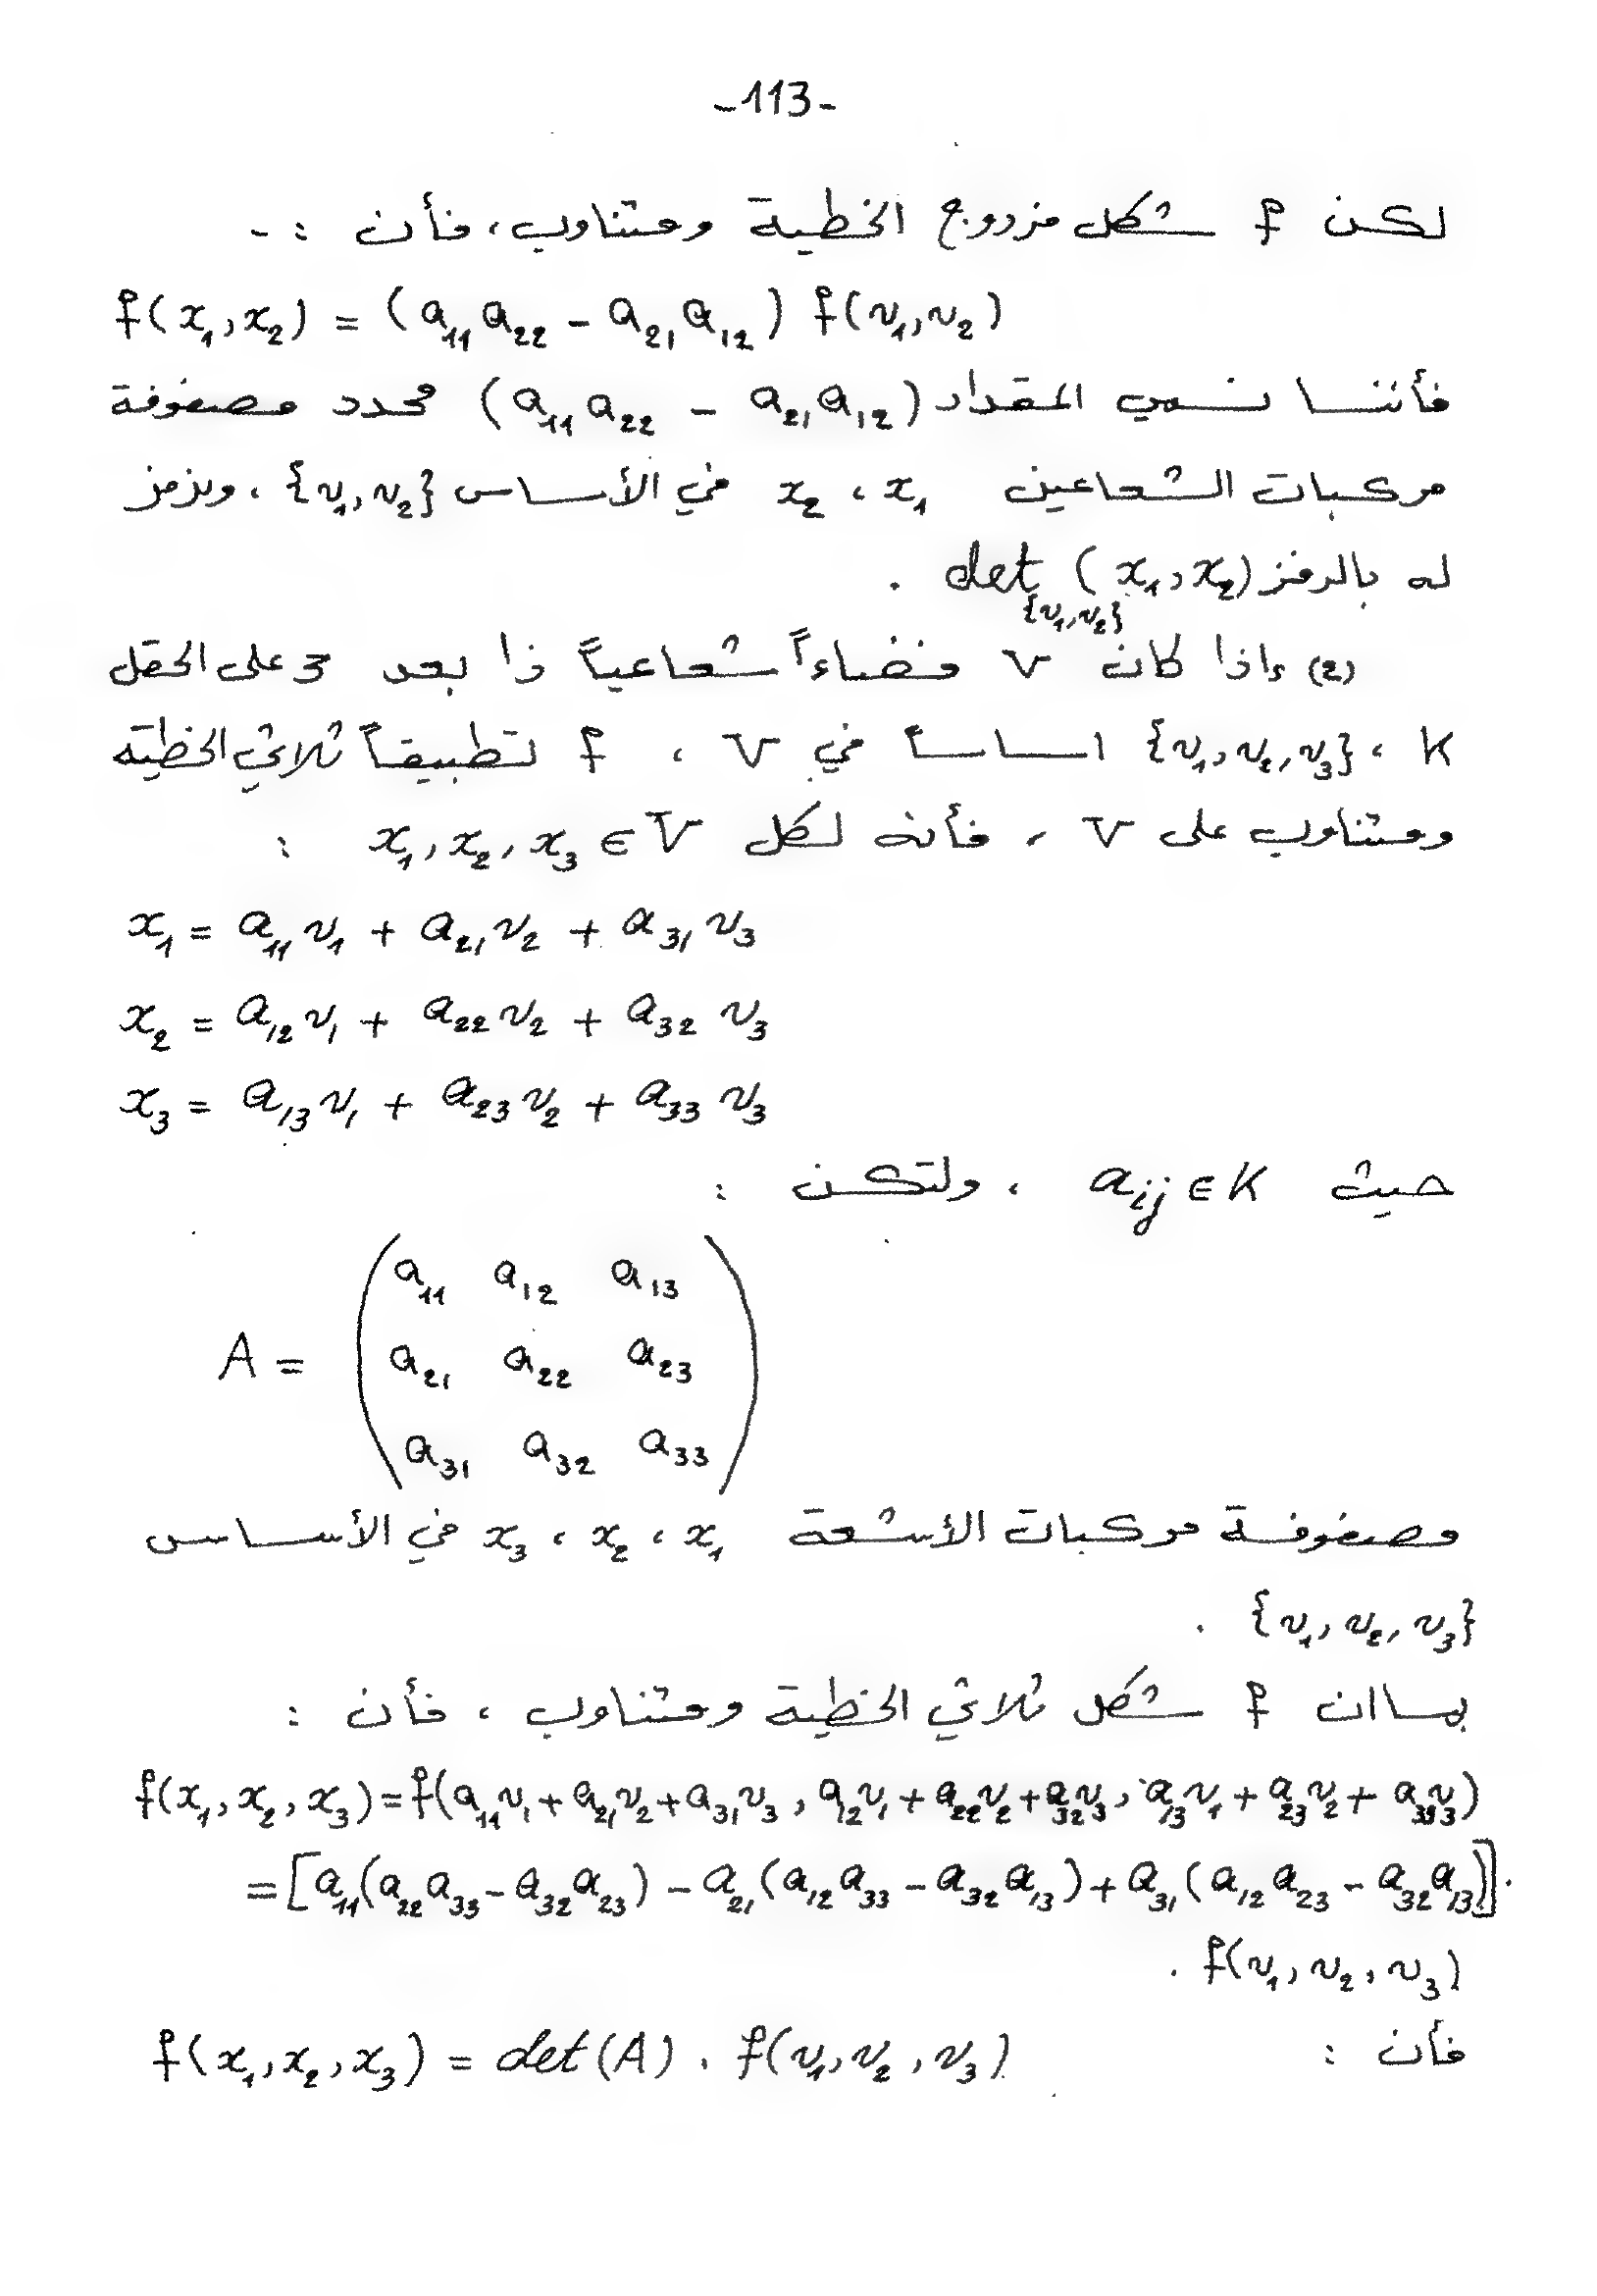 -113-
لكن f شكل مزدوج الخطية ومتناوب، فأن : -
f(x₁,x₂) = (a₁₁a₂₂ - a₂₁a₁₂) f(v₁,v₂)
فأننا نسمي المقدار (a₁₁a₂₂ - a₂₁a₁₂) محدد مصفوفة
مركبات الشعاعين x₁ ، x₂ في الأساس {v₁,v₂} ، ويرمز
له بالرمز det (x₁,x₂) .
{v₁,v₂}
(2) إذا كان V فضاءاً شعاعياً ذا بعد 3 على الحقل
K ، {v₁,v₂,v₃} اساساً في V ، f تطبيقاً ثلاثي الخطية
ومتناوب على V ، فأنه لكل x₁,x₂,x₃ ∈ V :
x₁ = a₁₁v₁ + a₂₁v₂ + a₃₁v₃
x₂ = a₁₂v₁ + a₂₂v₂ + a₃₂v₃
x₃ = a₁₃v₁ + a₂₃v₂ + a₃₃v₃
حيث aᵢⱼ ∈ K ، ولتكن :
a₁₁ a₁₂ a₁₃
A = ( a₂₁ a₂₂ a₂₃ )
a₃₁ a₃₂ a₃₃
مصفوفة مركبات الأشعة x₁ ، x₂ ، x₃ في الأساس
{v₁,v₂,v₃} .
بما ان f شكل ثلاثي الخطية ومتناوب ، فأن :
f(x₁,x₂,x₃) = f(a₁₁v₁+a₂₁v₂+a₃₁v₃, a₁₂v₁+a₂₂v₂+a₃₂v₃, a₁₃v₁+a₂₃v₂+a₃₃v₃)
= [a₁₁(a₂₂a₃₃-a₃₂a₂₃) - a₂₁(a₁₂a₃₃-a₃₂a₁₃) + a₃₁(a₁₂a₂₃-a₃₂a₁₃)].
. f(v₁,v₂,v₃)
فأن : f(x₁,x₂,x₃) = det(A) . f(v₁,v₂,v₃)